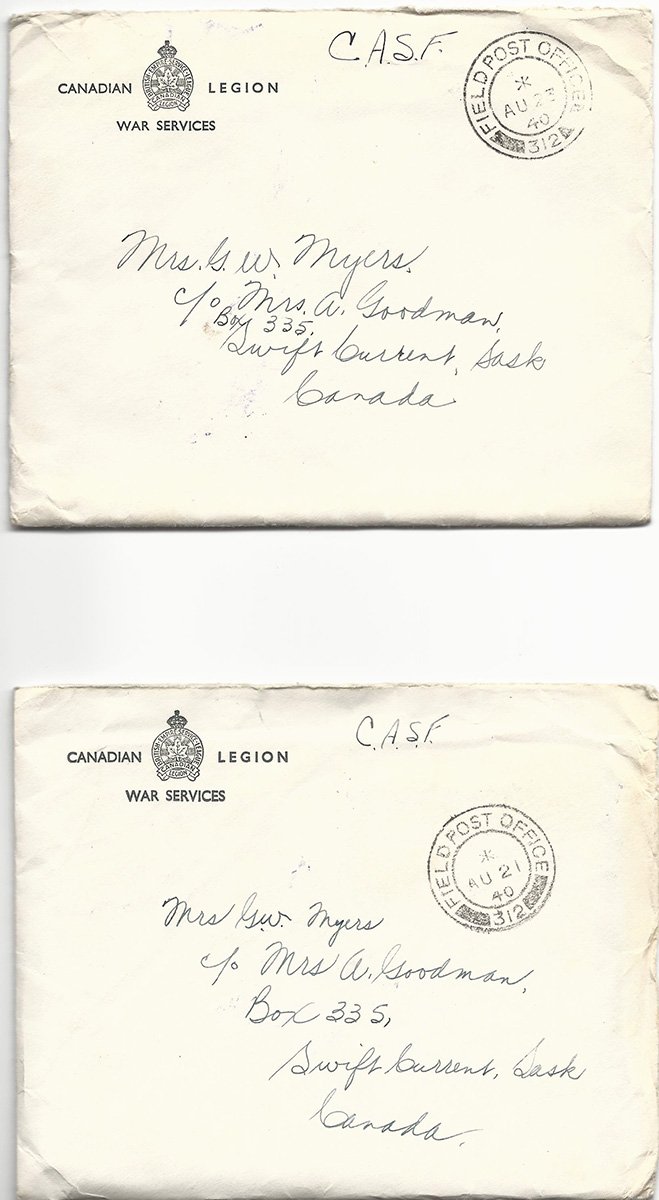 C.A.S.F.
CANADIAN LEGION
BRITISH EMPIRE SERVICE LEAGUE
CANADIAN
LEGION
WAR SERVICES
FIELD POST OFFICE
*
AU 23
40
312
Mrs. G. W. Myers.
c/o Mrs. A. Goodman,
Box 335,
Swift Current, Sask
Canada
C.A.S.F.
CANADIAN LEGION
BRITISH EMPIRE SERVICE LEAGUE
CANADIAN
LEGION
WAR SERVICES
FIELD POST OFFICE
*
AU 21
40
312
Mrs G.W. Myers
c/o Mrs A. Goodman,
Box 335,
Swift Current, Sask
Canada.